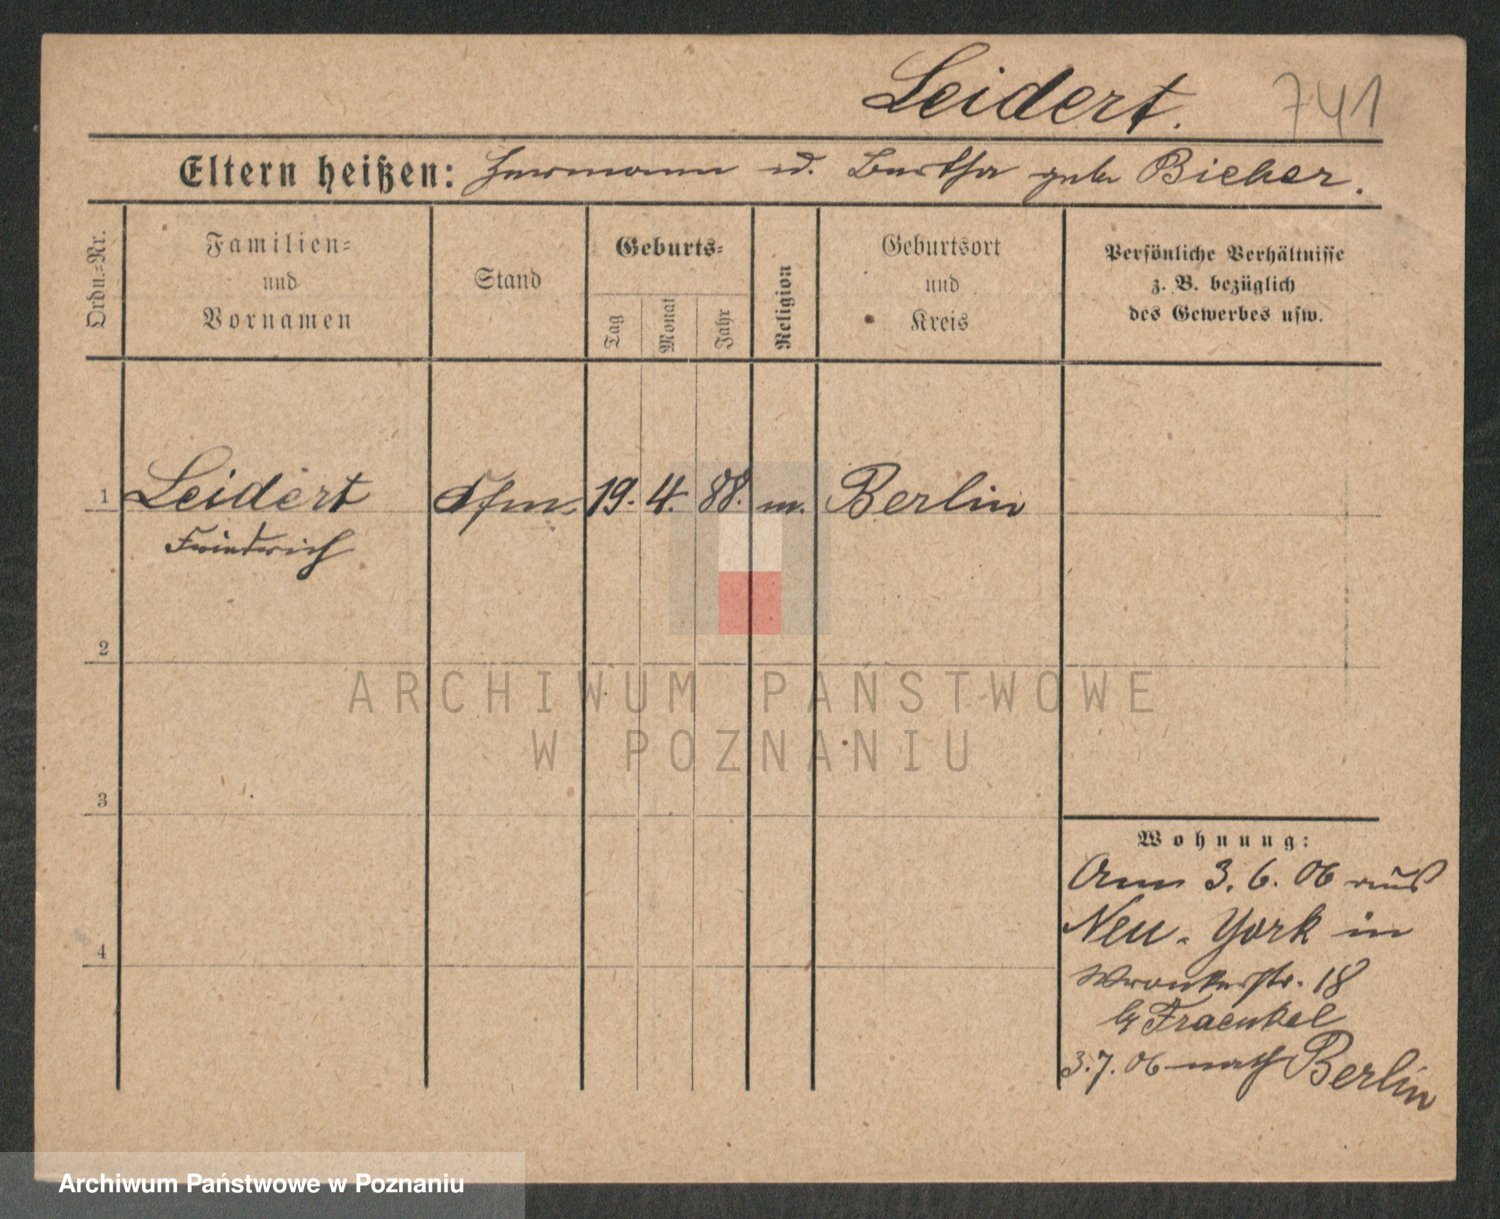 Leidert. 741
Eltern heißen: Hermann u. Bertha geb. Bieber.
Ordn.=Nr.
Familien=
und
Vornamen
Stand
Geburts=
Tag
Monat
Jahr
Religion
Geburtsort
und
Kreis
Persönliche Verhältnisse
z. B. bezüglich
des Gewerbes usw.
1 Leidert Kfm. 19. 4. 88. m. Berlin
Friedrich
2
3
4
Wohnung:
Anm 3. 6. 06 aus
Neu-York in
Wronkerstr. 18
b/ Fraenkel
3. 7. 06 nach Berlin
ARCHIWUM PAŃSTWOWE
W POZNANIU
Archiwum Państwowe w Poznaniu